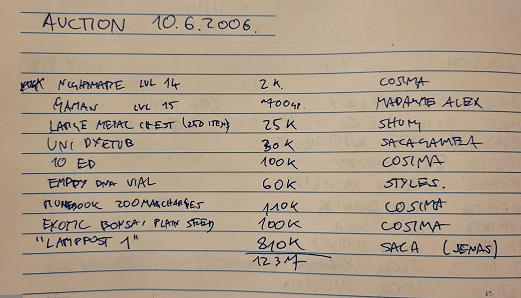 AUCTION 10.6.2006.
NIGHTMARE LVL 14 2K. COSIMA
GAMAN LVL 15 ~700gp. MADAME ALEX
LARGE METAL CHEST (250 ITEM) 25K SHUM
UNI DYETUB 30K SACAGAWEA
10 ED 100K COSIMA
EMPTY DNA VIAL 60K STYLES.
RUNEBOOK 200 MAXCHARGES 110K COSIMA
EXOTIC BONSAI PLAIN SEED 100K COSIMA
"LAMPPOST 1" 810K SACA (JENAS)
1.23M